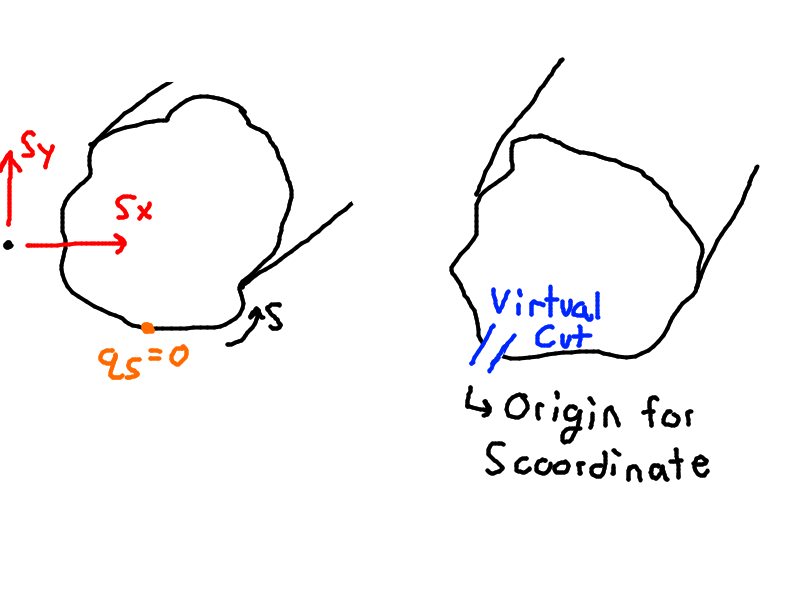 Sy
Sx
S
qs=0
Virtual
Cut
↳ Origin for
S coordinate